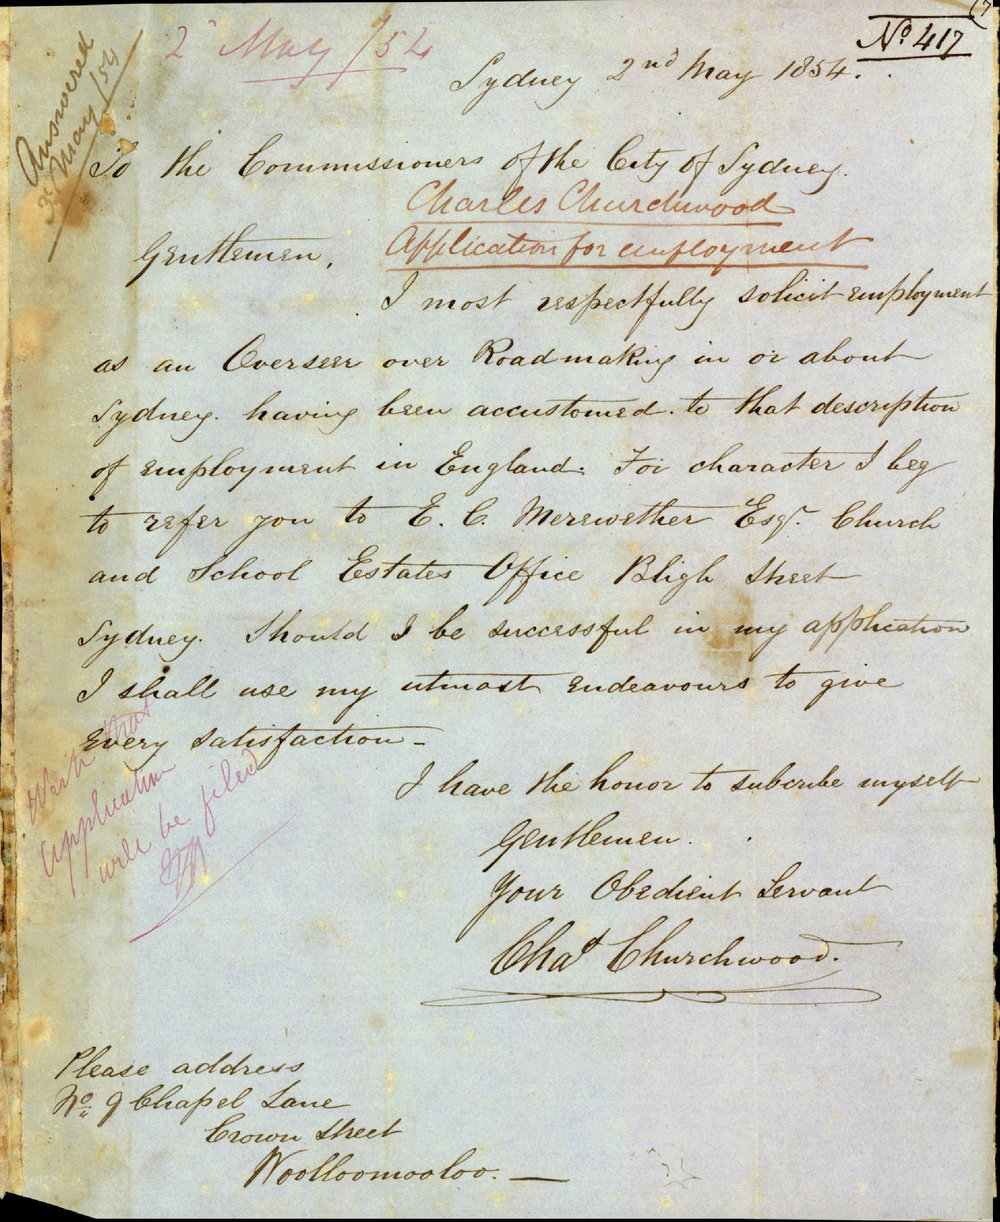 No. 417
2 May /54
Sydney 2nd May 1854.
Answered
3 May /54
To the Commissioners of the City of Sydney.
Charles Churchwood
Application for employment
Gentlemen,
I most respectfully solicit employment
as an Overseer over Roadmaking in or about
Sydney. having been accustomed. to that description
of employment in England. For character I beg
to refer you to E. C. Merewether Esqr. Church
and School Estates Office Bligh Street
Sydney. Should I be successful in my application
I shall use my utmost endeavours to give
every satisfaction -
that
application
will be filed
I have the honor to subcribe myself
Gentlemen.
Your Obedient Servant
Chas Churchwood.
Please address
No. 9 Chapel Lane
Crown Street
Woolloomooloo. —